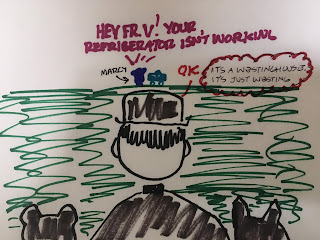 HEY FR. V! YOUR
REFRIGERATOR ISN'T WORKING
MARCY
OK
ITS A WESTINGHOUSE.
IT'S JUST WESTING